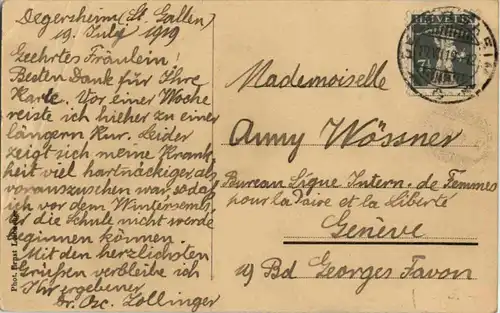 Degersheim (St. Gallen)
19. July 1919
Geehrtes Fräulein!
Besten Dank für Ihre
Karte. Vor einer Woche
reiste ich hieher zu einer
längern Kur. Leider
zeigt sich meine Krank-
heit viel hartnäckiger, als
vorauszusehen war, sodaß
ich vor dem Wintersemester
die Schule nicht werde
beginnen können.
Mit den herzlichsten
Grüßen verbleibe ich
Ihr ergebener
Zollinger
Phot. Ernst
HELVETIA
Mademoiselle
Anny Wössner
Bureau Ligue Intern. de Femmes
pour la Paix et la Liberté
Genève
19 Bd Georges Favon